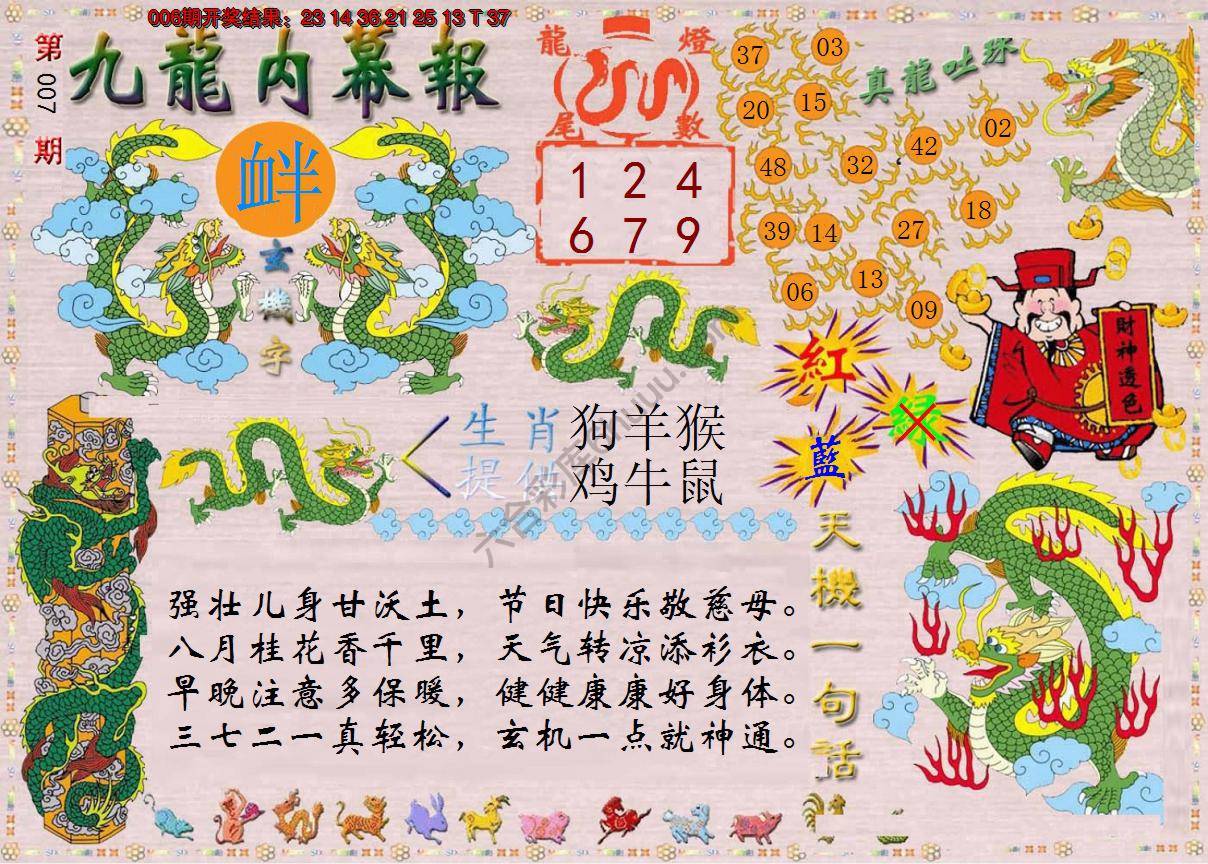 006期开奖结果：23 14 36 21 25 13 T 37
第007期
九龍内幕報
衅
玄機字
龍燈
尾數
1 2 4
6 7 9
真龍吐珠
37 03
20 15
48 32 42 02
39 14 27 18
06 13 09
紅
綠
藍
財神透色
生肖 狗羊猴
提供 鸡牛鼠
天機一句話
强壮儿身甘沃土，节日快乐敬慈母。
八月桂花香千里，天气转凉添衫衣。
早晚注意多保暖，健健康康好身体。
三七二一真轻松，玄机一点就神通。